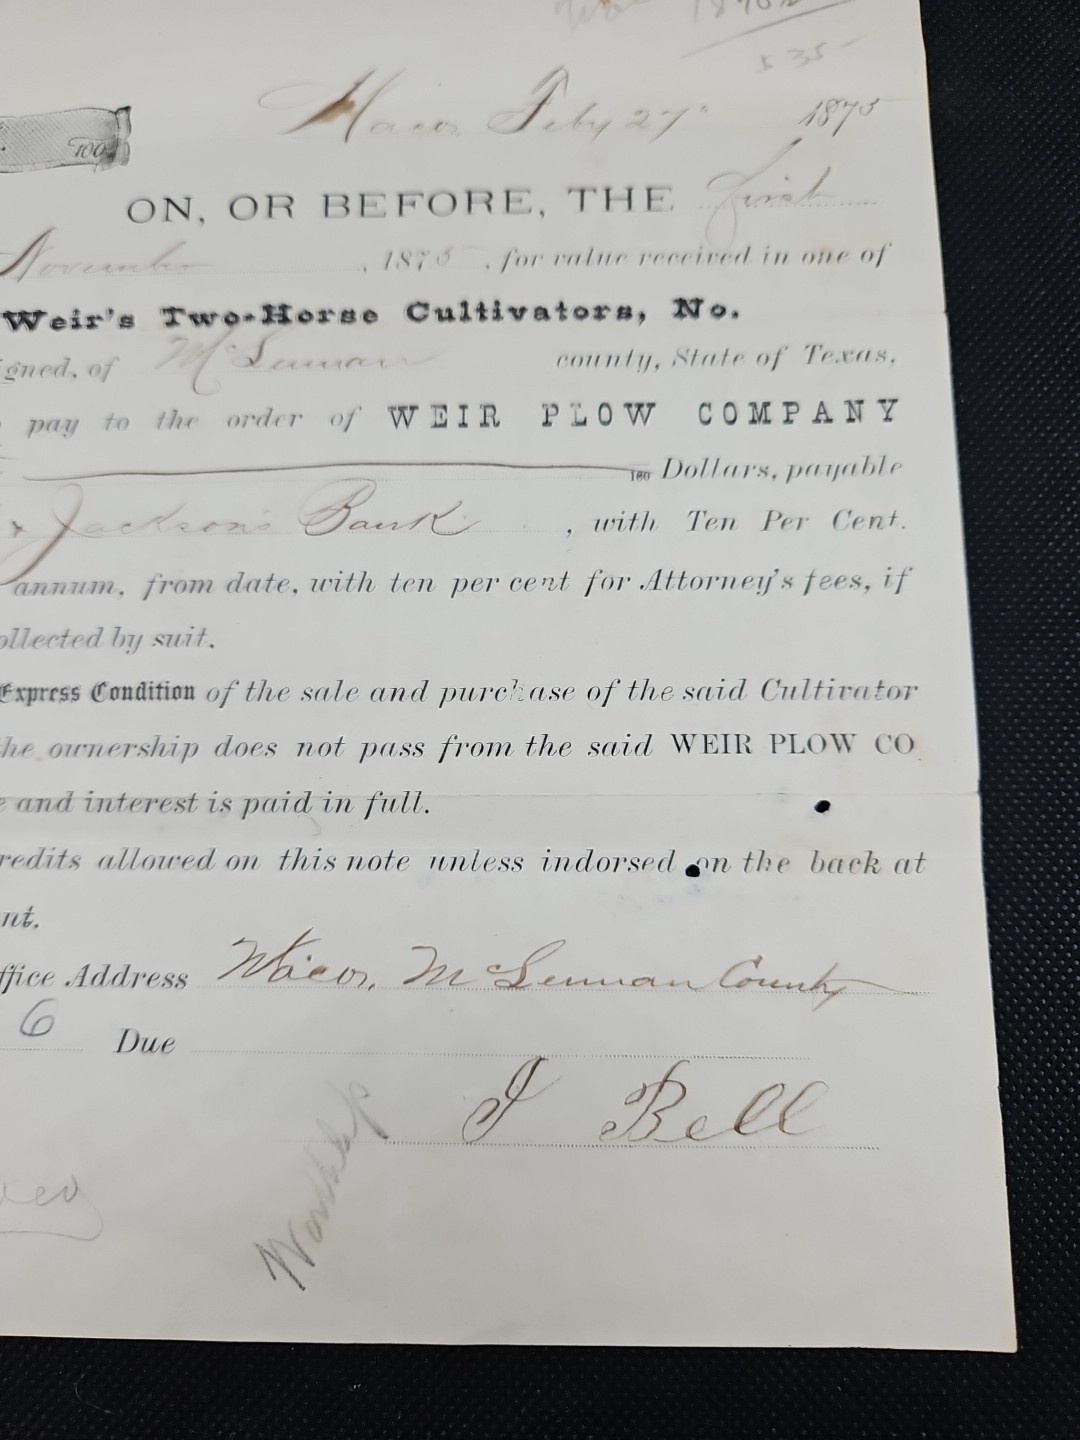 535-
Waco, Feby 27" 1875
100
ON, OR BEFORE, THE first
November , 1875 , for value received in one of
Weir's Two-Horse Cultivators, No.
igned, of McLennan county, State of Texas,
pay to the order of WEIR PLOW COMPANY
100 Dollars, payable
& Jackson's Bank , with Ten Per Cent.
annum, from date, with ten per cent for Attorney's fees, if
ollected by suit.
Express Condition of the sale and purchase of the said Cultivator
he ownership does not pass from the said WEIR PLOW CO
e and interest is paid in full.
redits allowed on this note unless indorsed on the back at
nt.
ffice Address Waco, McLennan County
6 Due
J Bell
Worthless